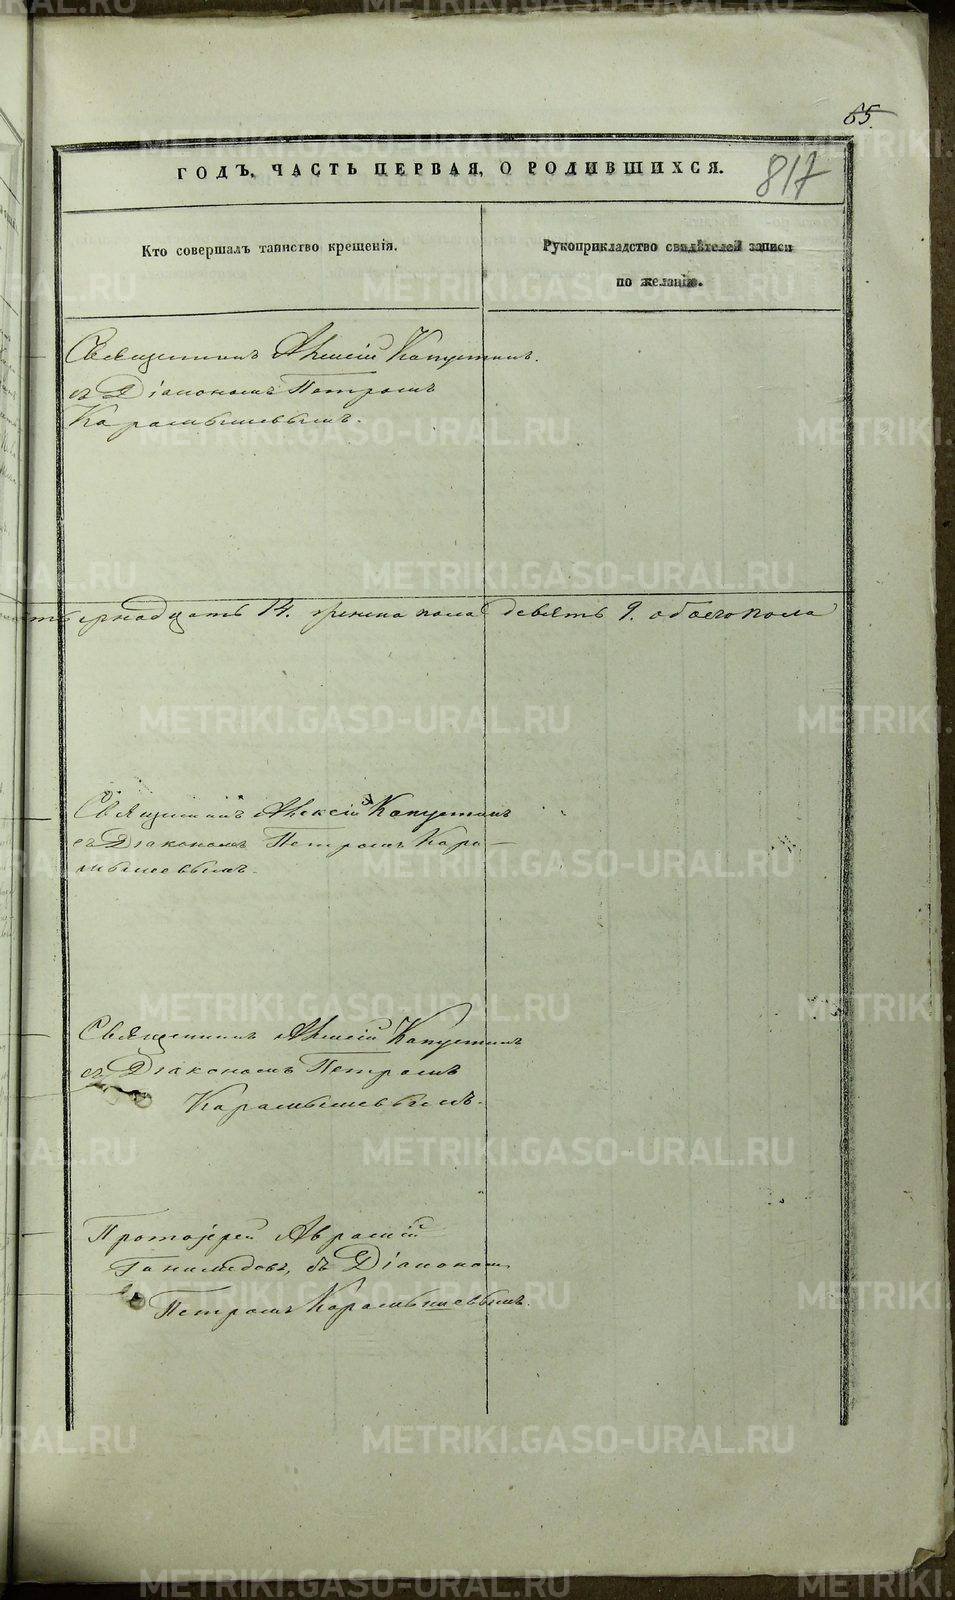 65.
817
ГОДЪ, ЧАСТЬ ПЕРВАЯ, О РОДИВШИХСЯ.
Кто совершалъ таинство крещенія.
Рукоприкладство свидѣтелей записи
по желанію.
Священникъ Алексій Капустинъ.
съ Діакономъ Петромъ
Карамышевымъ.
тырнадцать 14. женска пола девять 9. обоего пола
Священникъ Алексій Капустинъ
съ Діакономъ Петромъ Кара-
мышевымъ.
Священникъ Алексій Капустинъ
съ Діакономъ Петромъ
Карамышевымъ.
Протоіерей Аврамій
съ Діакономъ
Петромъ Карамышевымъ.
METRIKI.GASO-URAL.RU